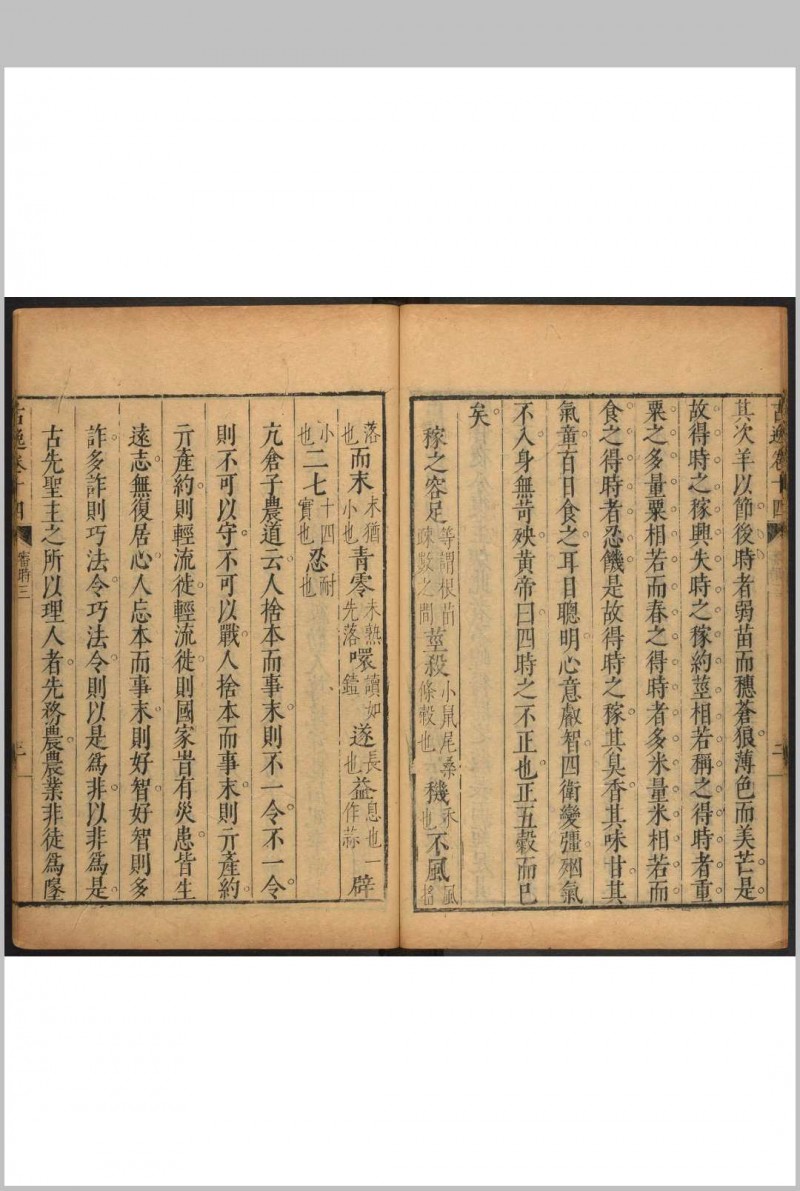 其次羊以節後時者弱苗而穗蒼狼薄色而美芒是
故得時之稼興失時之稼約莖相若稱之得時者重
粟之多量粟相若而舂之得時者多米量米相若而
食之得時者忍饑是故得時之稼其臭香其味甘其
氣章百日食之耳目聰明心意叡智四衛變彊㓙氣
不入身無苛殃黃帝曰四時之不正也正五穀而已
矣
稼之容足等謂根苗疎數之間莖殺小鼠尾桑條殺也穖禾也不風風搖
落也而末末猶小也青零未熟先落㬊讀如鎧遂長也益息也一作蒜辟
小也二七十四實也忍耐也
亢倉子農道云人捨本而事末則不一令不一令
則不可以守不可以戰人捨本而事末則亓產約
亓產約則輕流徙輕流徙則國家旹有災患皆生
遠志無復居心人忘本而事末則好智好智則多
詐多詐則巧法令巧法令則以是爲非以非爲是
古先聖王之所以理人者先務農農業非徒爲墬
古逸卷十四
審時三
古逸卷十四
二